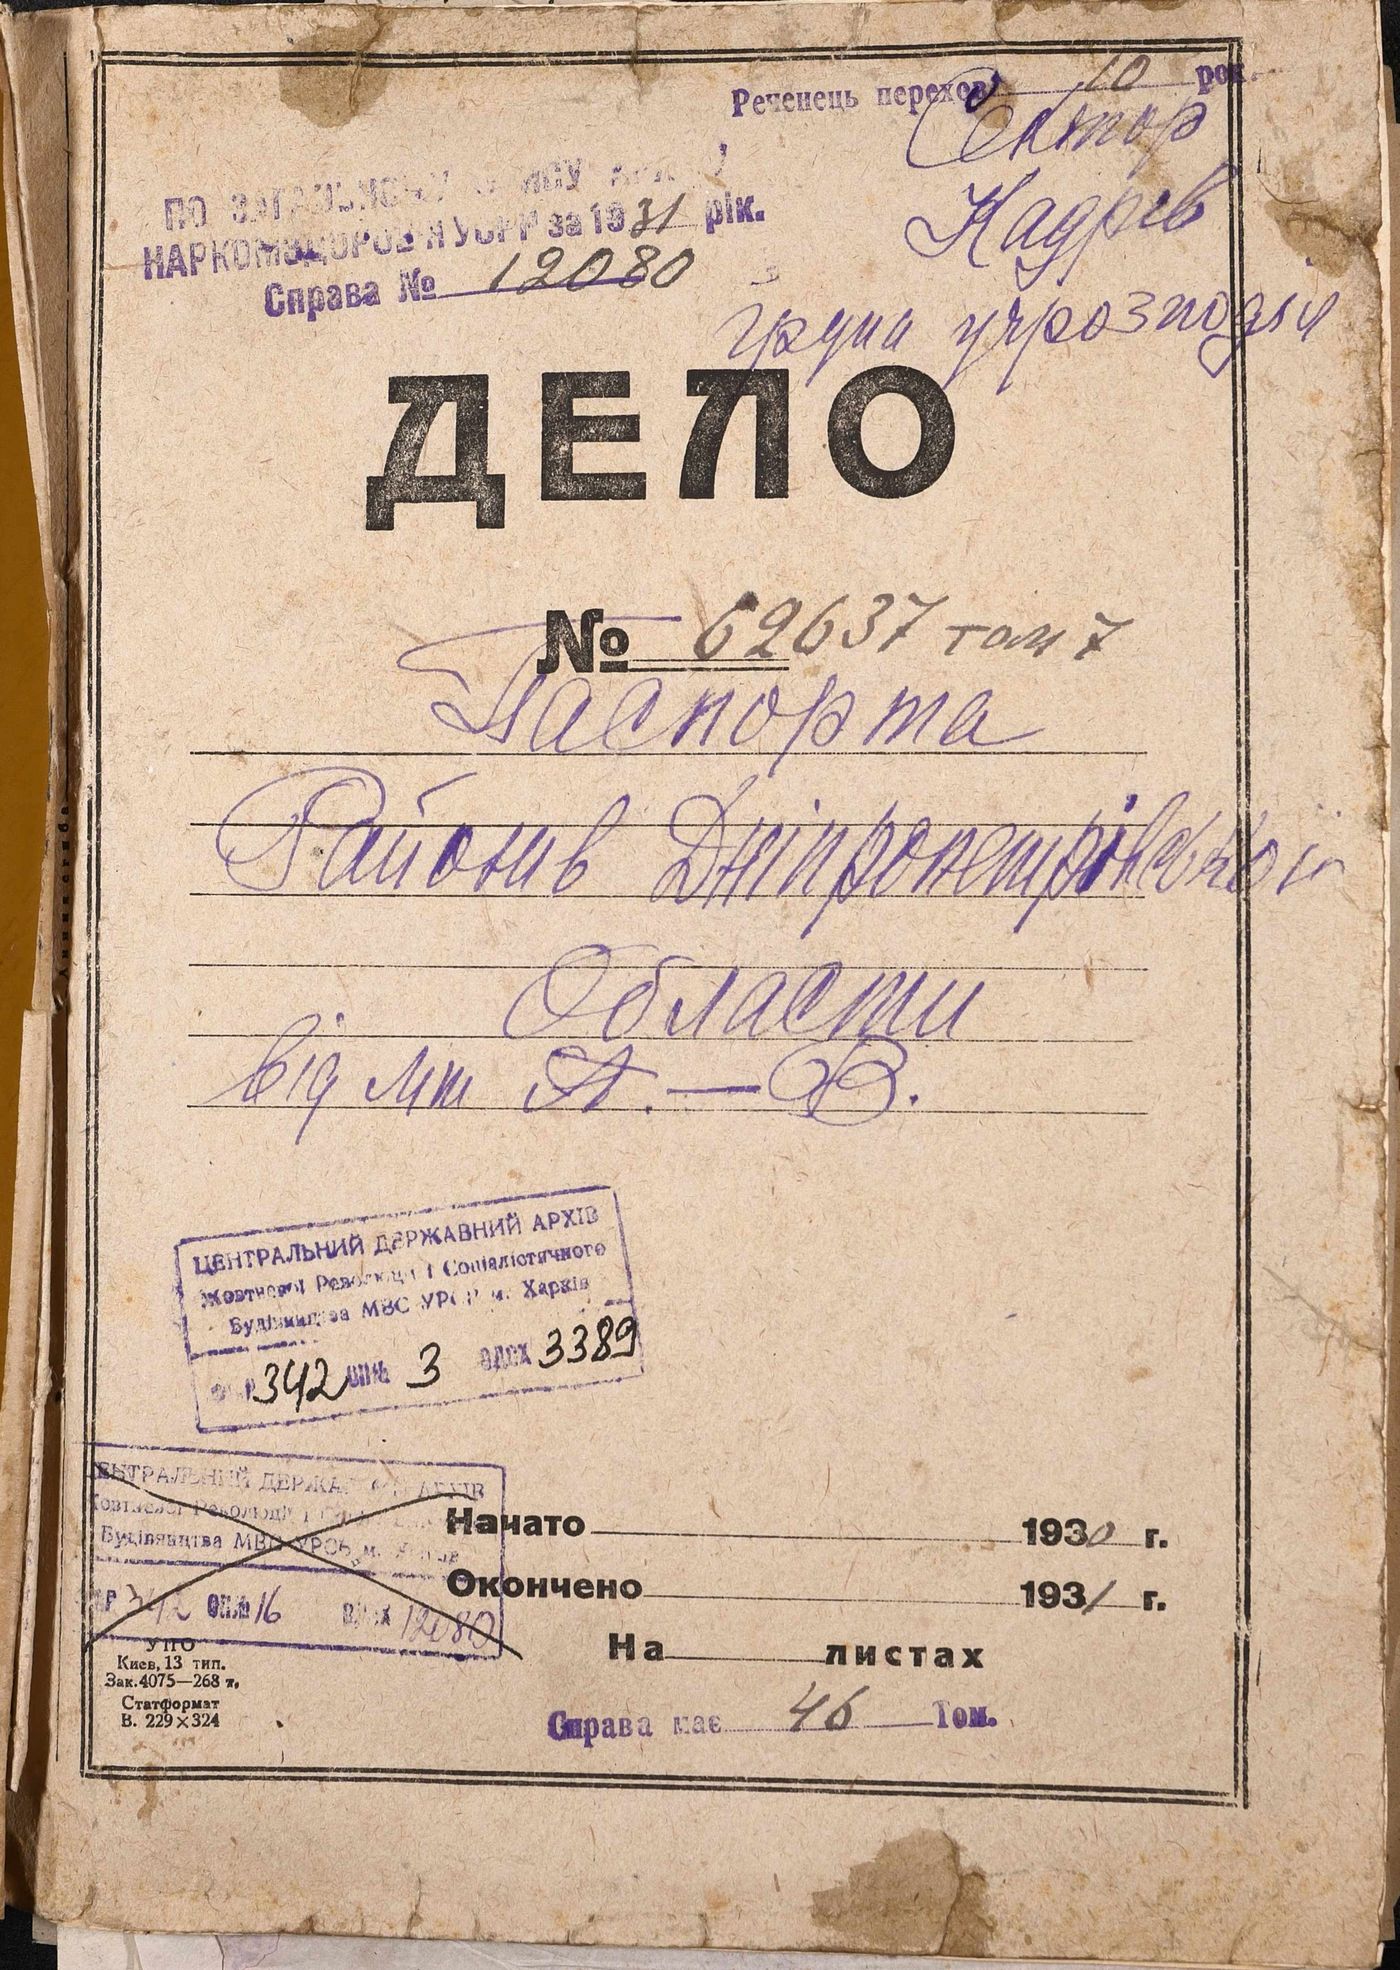 Реченець перехов. 10 рок.
Сектор
Кадрів
Група учрозподіл
ПО ЗАГАЛЬНОМУ ОПИСУ АРХІВУ
НАРКОМЗДОРОВ'Я УСРР за 1931 рік.
Справа № 12080
ДЕЛО
№ 62637 том 7
Паспорта
Районив Дніпропетрівської
Области
від міт А. – В.
ЦЕНТРАЛЬНИЙ ДЕРЖАВНИЙ АРХІВ
Жовтневої Революції і Соціалістичного
Будівництва МВС УРСР м. Харків
342 ОП.№ 3 ОДСХ 3389
ЦЕНТРАЛЬНИЙ ДЕРЖАВНИЙ АРХІВ
Жовтневої Революції і
Будівництва МВС УРСР м. Харків
342 ОП.№ 16 12080
Начато 1930 г.
Окончено 1931 г.
На листах
Справа має 46 Том.
УПО
Киев, 13 тип.
Зак. 4075—268 т.
Статформат
В. 229×324